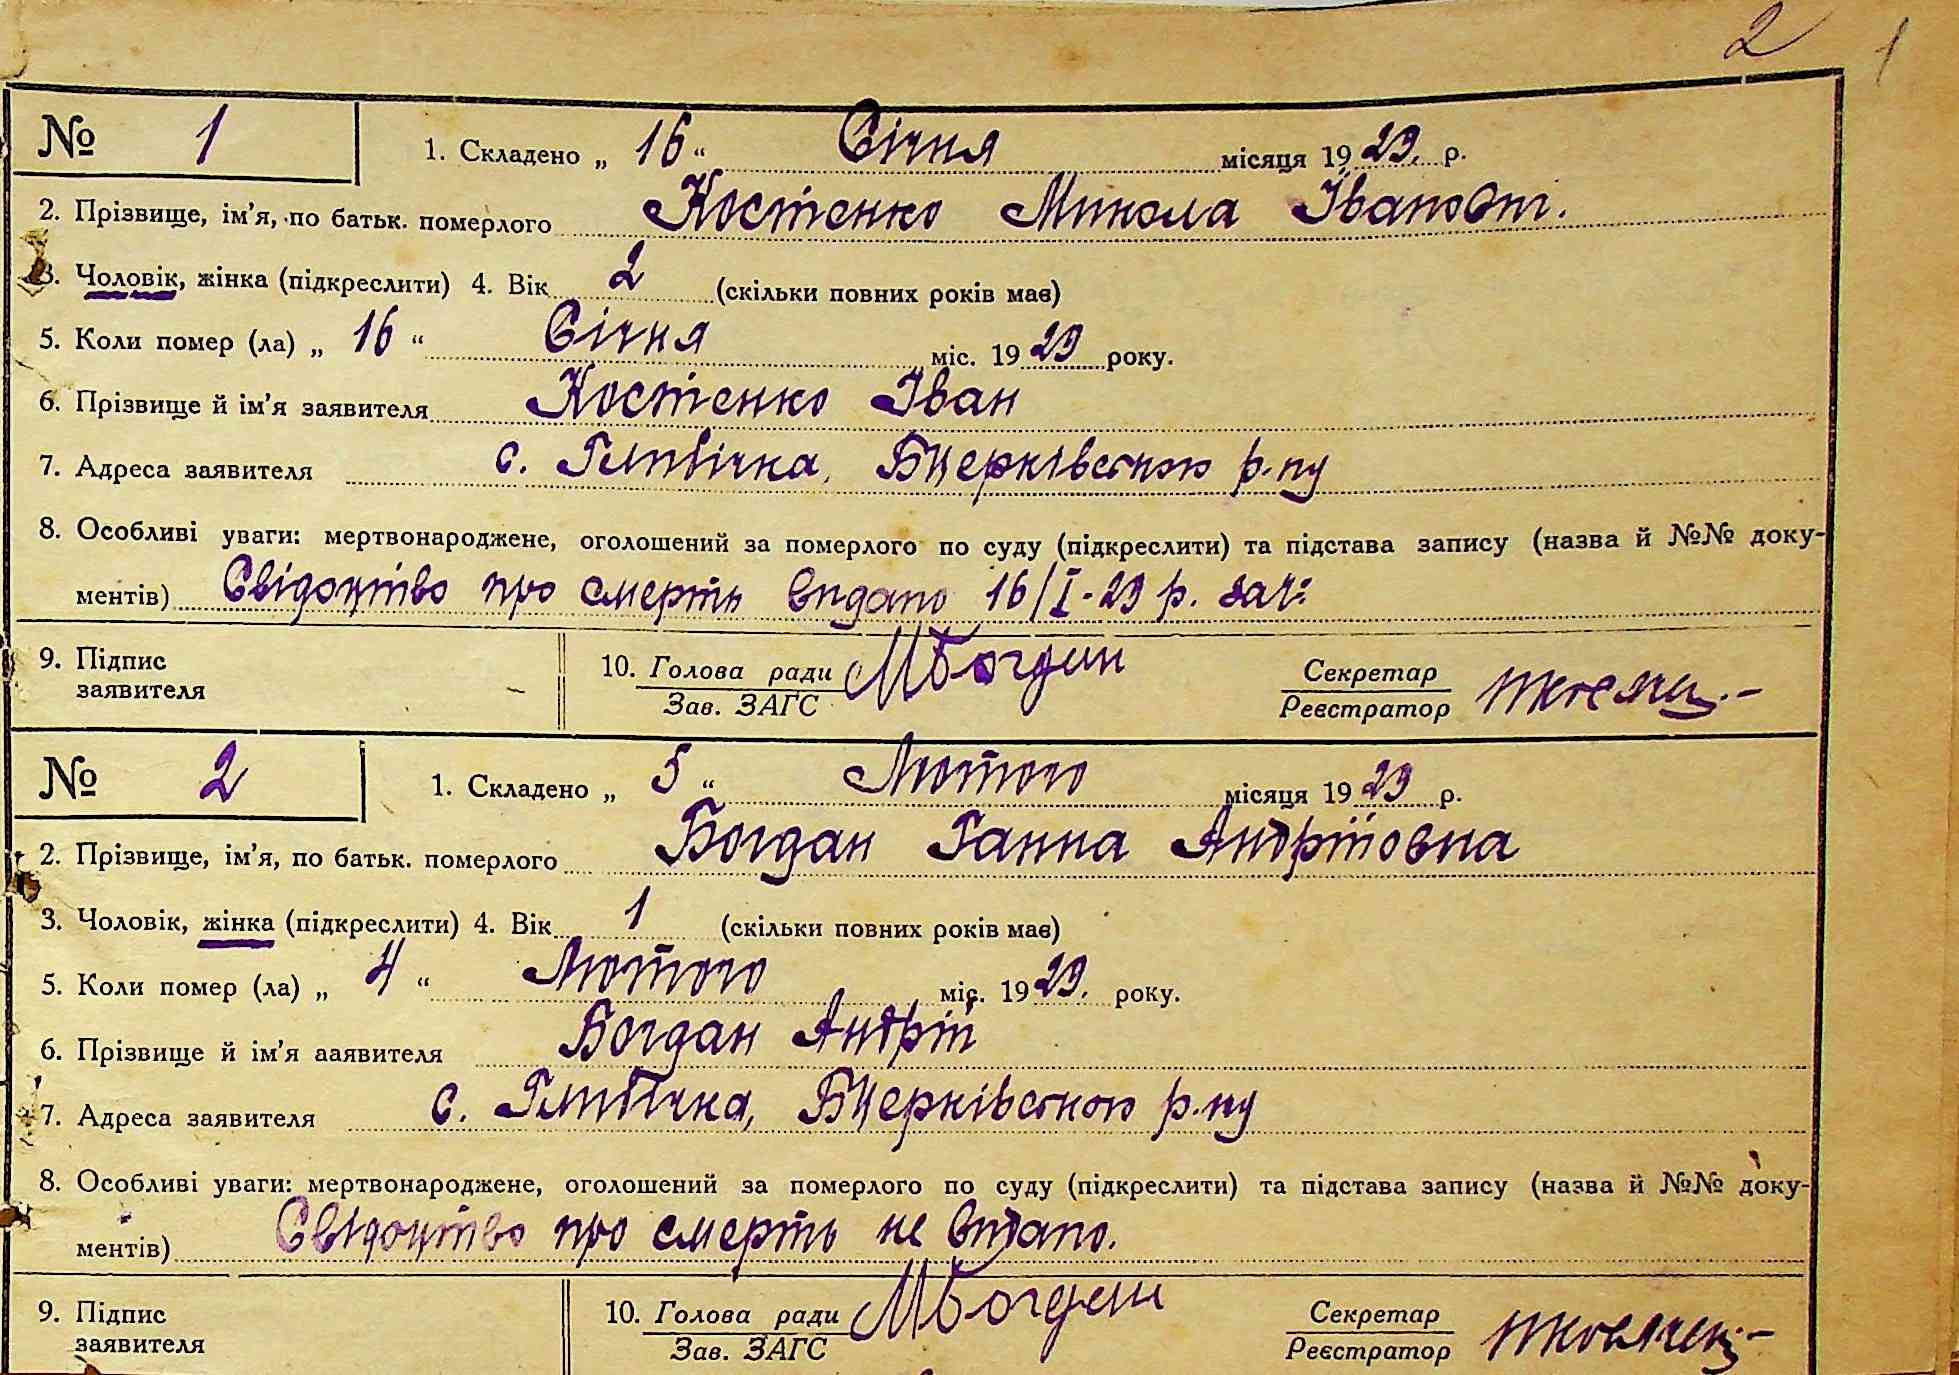 2 1
№ 1 1. Складено „ 16 “ Січня місяця 1929. р.
2. Прізвище, ім’я, по батьк. померлого Костенко Микола Іванович.
3. Чоловік, жінка (підкреслити) 4. Вік 2 (скільки повних років має)
5. Коли помер (ла) „ 16 “ Січня міс. 1929 року.
6. Прізвище й ім’я заявителя Костенко Іван
7. Адреса заявителя с. Глибічка, БЦерківського р-ну
8. Особливі уваги: мертвонароджене, оголошений за померлого по суду (підкреслити) та підстава запису (назва й №№ доку-
ментів) Свідоцтво про смерть видано 16/I-29 р.
9. Підпис 10. Голова ради МБогдан Секретар
заявителя Зав. ЗАГС Реєстратор
№ 2 1. Складено „ 5 “ Лютого місяця 1929 р.
2. Прізвище, ім’я, по батьк. померлого Богдан Ганна Андріївна
3. Чоловік, жінка (підкреслити) 4. Вік 1 (скільки повних років має)
5. Коли помер (ла) „ 4 “ Лютого міс. 1929. року.
6. Прізвище й ім’я ааявителя Богдан Андрій
7. Адреса заявителя с. Глибічка, БЦерківського р-ну
8. Особливі уваги: мертвонароджене, оголошений за померлого по суду (підкреслити) та підстава запису (назва й №№ доку-
ментів) Свідоцтво про смерть не видано.
9. Підпис 10. Голова ради МБогдан Секретар
заявителя Зав. ЗАГС Реєстратор